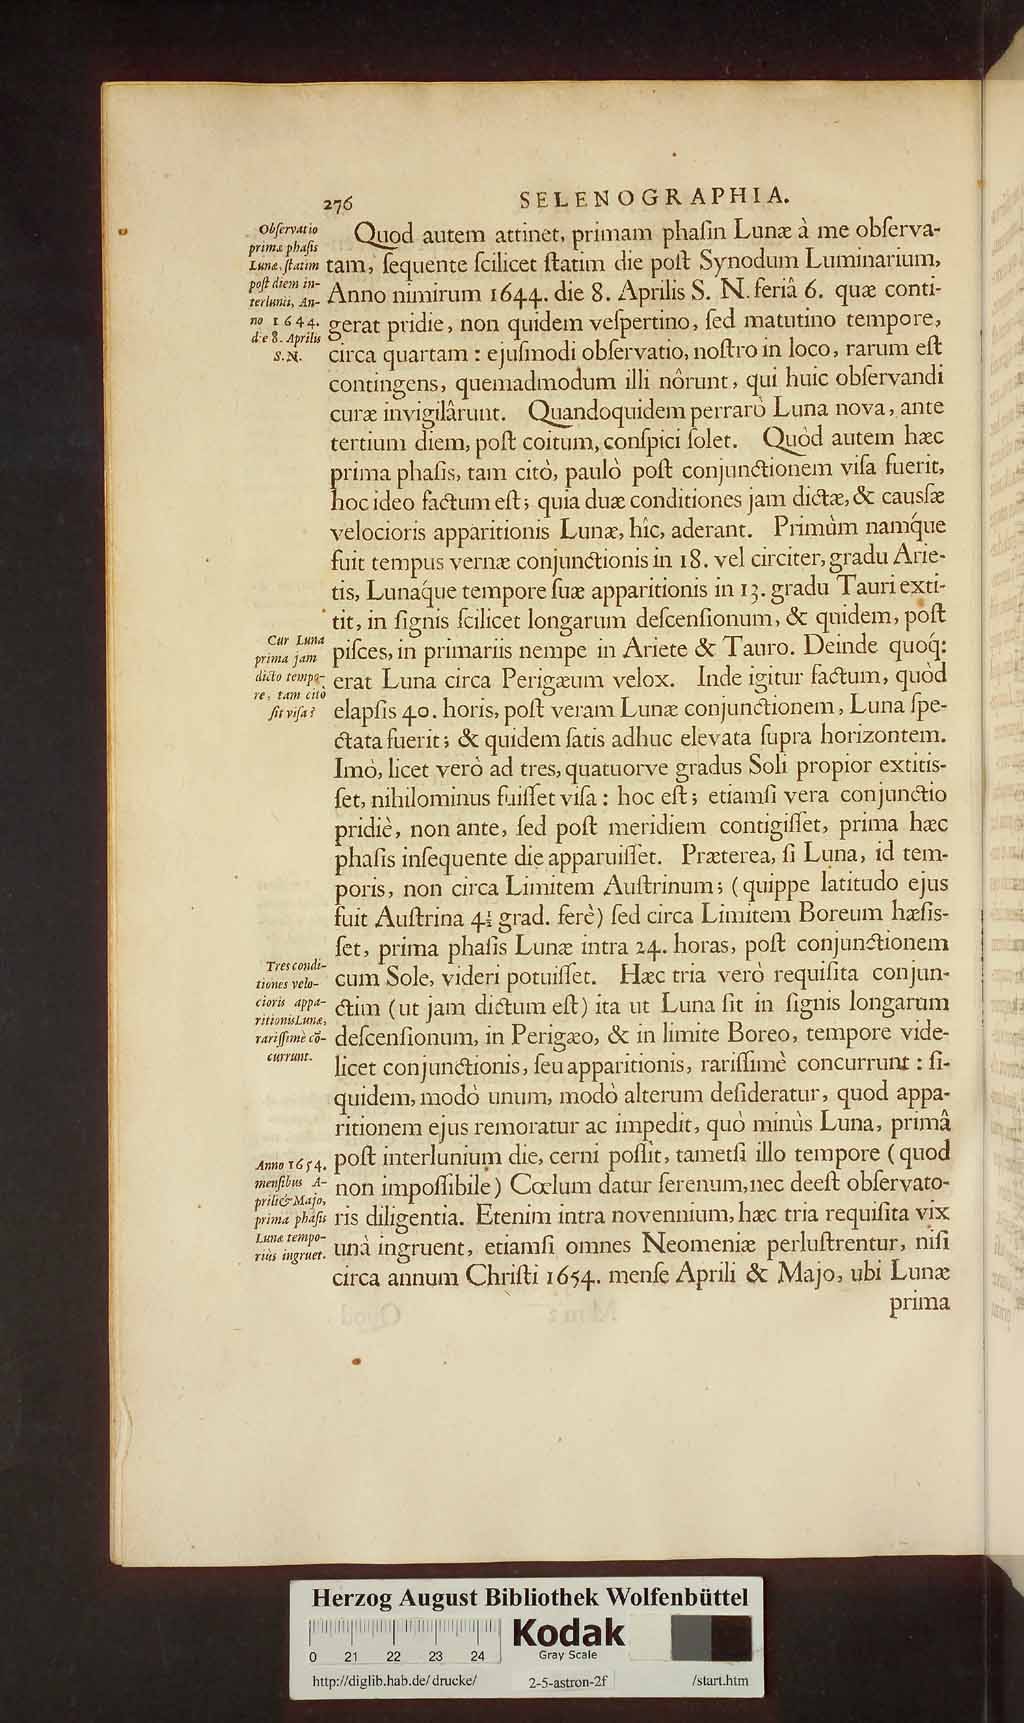 276
SELENOGRAPHIA.
Obſervatio
primæ phaſis
Lunæ, ſtatim
poſt diem in-
terlunii, An-
no 1644.
die 8. Aprilis
S. N.
Quod autem attinet, primam phaſin Lunæ à me obſerva-
tam, ſequente ſcilicet ſtatim die poſt Synodum Luminarium,
Anno nimirum 1644. die 8. Aprilis S. N. feriâ 6. quæ conti-
gerat pridie, non quidem veſpertino, ſed matutino tempore,
circa quartam : ejuſmodi obſervatio, noſtro in loco, rarum eſt
contingens, quemadmodum illi nôrunt, qui huic obſervandi
curæ invigilârunt. Quandoquidem perrarò Luna nova, ante
tertium diem, poſt coitum, conſpici ſolet. Quòd autem hæc
prima phaſis, tam citò, paulò poſt conjunctionem viſa fuerit,
hoc ideo factum eſt; quia duæ conditiones jam dictæ, & causſæ
velocioris apparitionis Lunæ, hîc, aderant. Primùm namq́ue
fuit tempus vernæ conjunctionis in 18. vel circiter, gradu Arie-
tis, Lunaq́ue tempore ſuæ apparitionis in 13. gradu Tauri exti-
tit, in ſignis ſcilicet longarum deſcenſionum, & quidem, poſt
Cur Luna
prima jam
dicto tempo-
re, tam citò
ſit viſa?
piſces, in primariis nempe in Ariete & Tauro. Deinde quoq́:
erat Luna circa Perigæum velox. Inde igitur factum, quòd
elapſis 40. horis, poſt veram Lunæ conjunctionem, Luna ſpe-
ctata fuerit; & quidem ſatis adhuc elevata ſupra horizontem.
Imò, licet verò ad tres, quatuorve gradus Soli propior extitiſ-
ſet, nihilominus fuiſſet viſa : hoc eſt; etiamſi vera conjunctio
pridiè, non ante, ſed poſt meridiem contigiſſet, prima hæc
phaſis inſequente die apparuiſſet. Præterea, ſi Luna, id tem-
poris, non circa Limitem Auſtrinum; (quippe latitudo ejus
fuit Auſtrina 4½ grad. ferè) ſed circa Limitem Boreum hæſiſ-
ſet, prima phaſis Lunæ intra 24. horas, poſt conjunctionem
Tres condi-
tiones velo-
cioris appa-
ritionis Lunæ,
rariſſimè cō-
currunt.
cum Sole, videri potuiſſet. Hæc tria verò requiſita conjun-
ctim (ut jam dictum eſt) ita ut Luna ſit in ſignis longarum
deſcenſionum, in Perigæo, & in limite Boreo, tempore vide-
licet conjunctionis, ſeu apparitionis, rariſſimè concurrunt : ſi-
quidem, modò unum, modò alterum deſideratur, quod appa-
ritionem ejus remoratur ac impedit, quò minùs Luna, primâ
Anno 1654.
menſibus A-
prili & Majo,
prima phaſis
Lunæ tempo-
riùs ingruet.
poſt interlunium die, cerni poſſit, tametſi illo tempore (quod
non impoſſibile) Cœlum datur ſerenum, nec deeſt obſervato-
ris diligentia. Etenim intra novennium, hæc tria requiſita vix
unà ingruent, etiamſi omnes Neomeniæ perluſtrentur, niſi
circa annum Chriſti 1654. menſe Aprili & Majo, ubi Lunæ
prima
Herzog August Bibliothek Wolfenbüttel
Kodak
Gray Scale
0 21 22 23 24
http://diglib.hab.de/drucke/ 2-5-astron-2f /start.htm